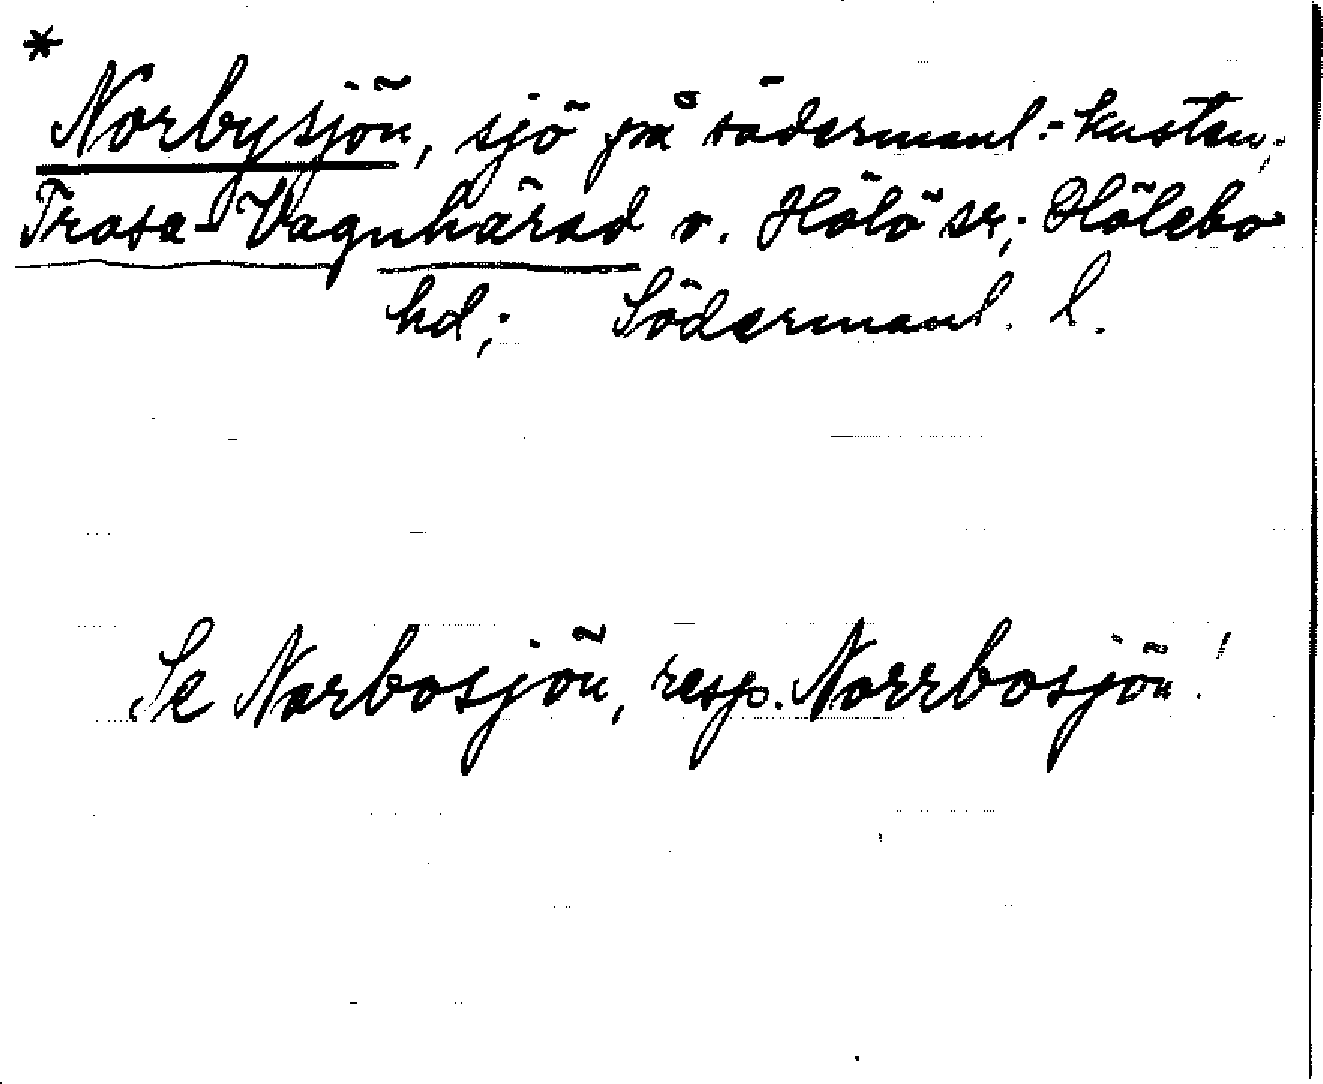 *
Norbysjön, sjö på södermanl.-kusten;
Trosa-Vagnhärad o. Hölö sr; Hölebo
hd; Södermanl. l.
Se Norbosjön, resp. Norrbosjön!